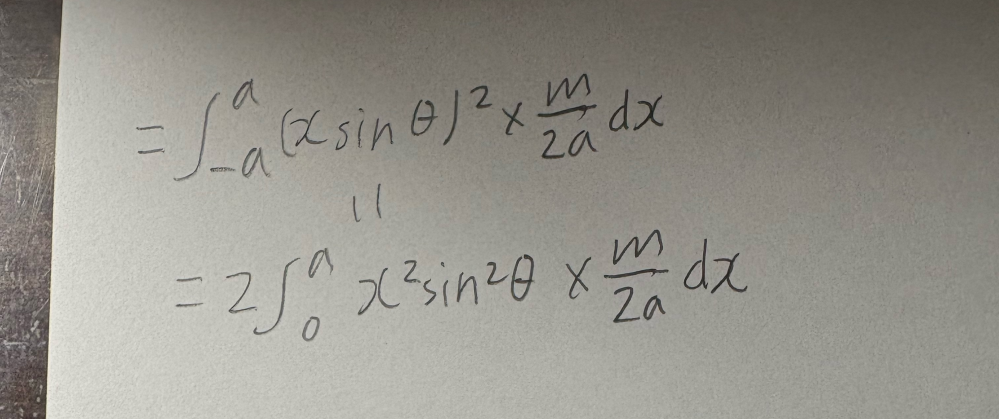 = ∫_{-a}^{a} (x sin θ)² × m/2a dx
||
= 2∫_{0}^{a} x² sin²θ × m/2a dx